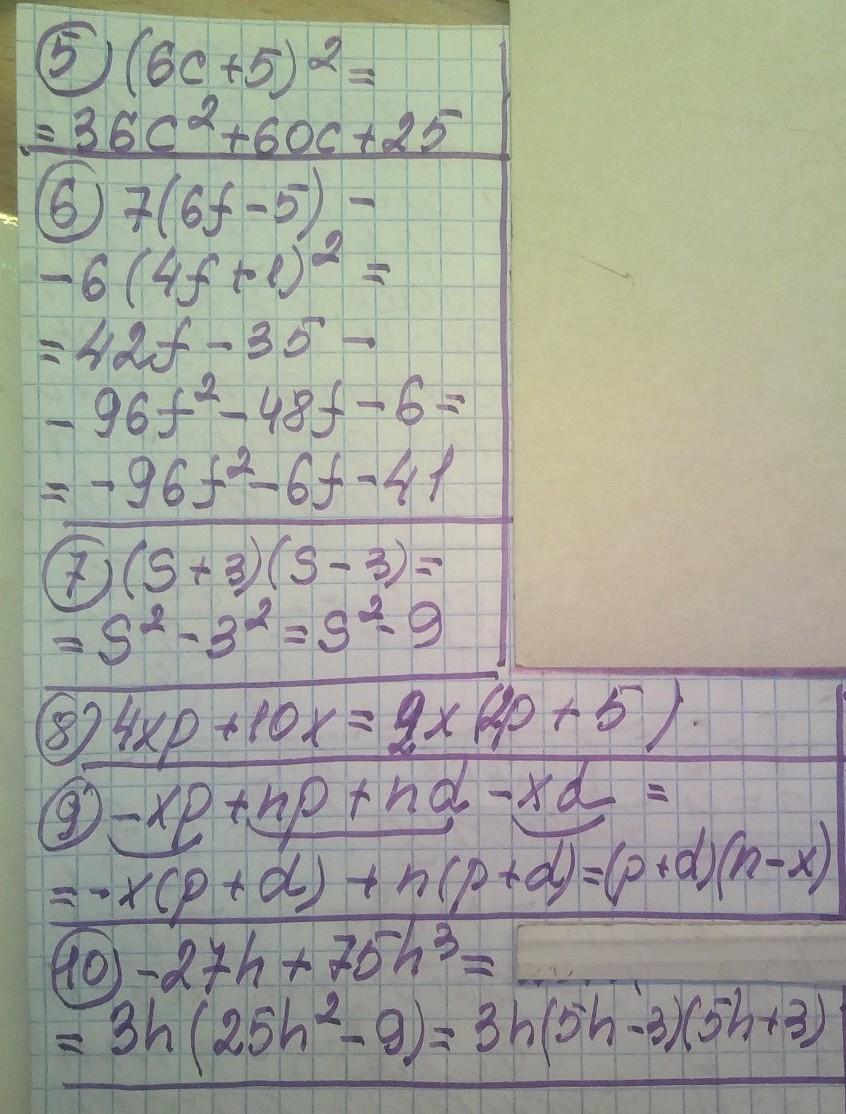 5) (6c+5)² =
= 36c² + 60c + 25
6) 7(6f - 5) -
- 6(4f + 1)² =
= 42f - 35 -
- 96f² - 48f - 6 =
= - 96f² - 6f - 41
7) (S + 3)(S - 3) =
= S² - 3² = S² - 9
8) 4xp + 10x = 2x(2p + 5).
9) -xp + np + nd - xd =
= -x(p + d) + n(p + d) = (p + d)(n - x)
10) -27h + 75h³ =
= 3h(25h² - 9) = 3h(5h - 3)(5h + 3)